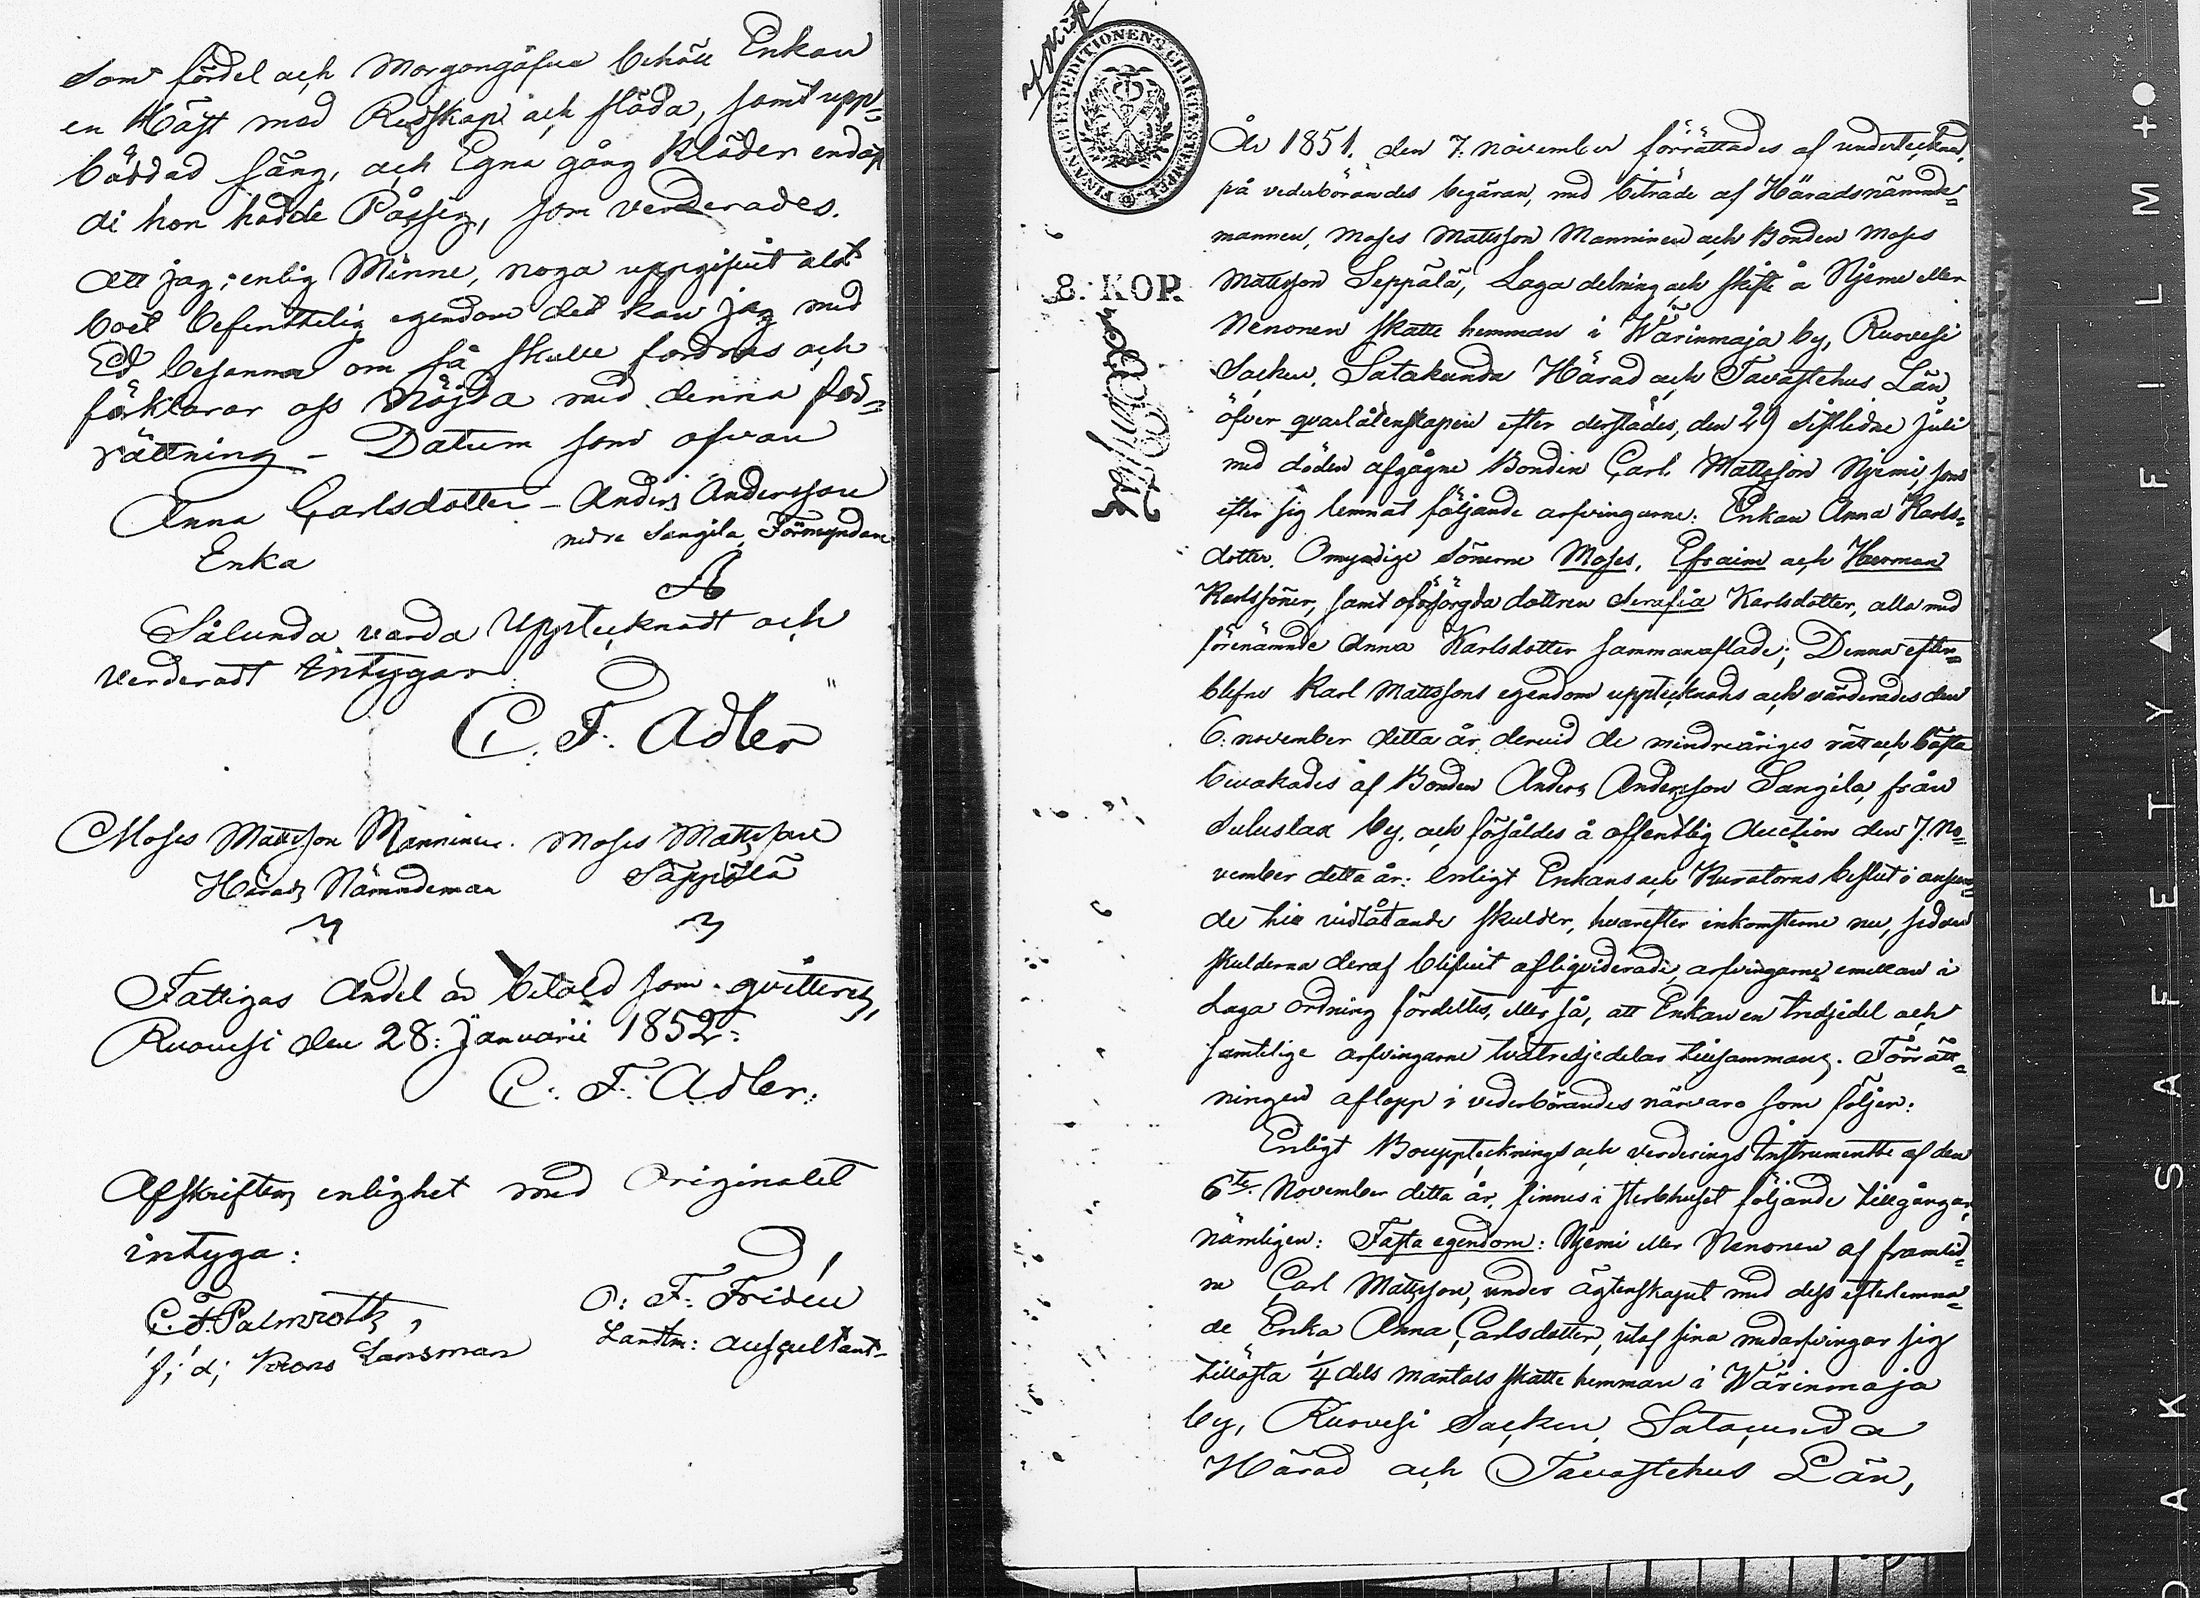 Som fördel och Morgongåfva behåll Enkan
en Häst med Redskap och släda, samt upp-
bäddad säng, och Egna gång kläder endast
di hon hadde På sig, som verderades.
Att jag, enlig Minne, noga uppgifvit alt
boet befinttelig egendom det kan jag med
Ed besanna om så skulle fordras och
förklarar oss nöjda med denna för-
rättning – Datum som ofvan
Anna Carlsdotter – Anders Andersson
Enka nedre Sangila, Förmyndare
Sålunda varda Upptecknadt och
verderadt intygar
C. F. Adler
Moses Mattsson Manninen. Moses Mattsson
Härads Nämndeman Säppälä
Fattigas Andel är betald som qvitteras,
Ruovesi den 28: Januarii 1852:
C. F. Adler:
Afskriftens enlighet med Originalet
intyga:
C. F. Palmroth, O: F: Fridén
f; d; Krons Länsman Landtm: Auscultant
FINANCE EXPEDITIONENS CHARTA STEMPEL
8. KOP.
År 1851. den 7: november förrättades af undertecknad,
på vederbörandes begäran, med biträde af Häradsnämnde-
mannen, Moses Mattsson Manninen och Bonden Moses
Mattsson Seppälä, Laga delning och skifte å Njemi eller
Nenonen skatte hemman i Wärinmaja by, Ruovesi
Socken, Satakunda Härad och Tavastehus Län,
öfver qvarlåtenskapen efter derstädes, den 29 sistledne Juli
med döden afgågne Bonden Carl Mattsson Njemi, som
efter sig lemnat följande arfvingarne: Enkan Anna Karls-
dotter. Omyndige Sönerne Moses, Efraim och Herman
Karlssöner, samt oförsörgda dottren Serafia Karlsdotter, alla med
förenämnde Anna Karlsdotter sammanaflade; Denna efter-
blefne Karl Mattssons egendom upptecknads och värderades den
6: november detta år, dervid de mindreåriges rätt och bästa
bevakades af Bonden Anders Andersson Sangila, från
Suluslax by, och försåldes å offentlig Auction den 7. No-
vember detta år: enligt Enkans och Kuratorns beslut i anseen-
de till vidlåtande skulder, hvarefter inkomsterne nu, sedan
skulderna deraf blifvit afliqviderade, arfvingarne emellan i
Laga ordning fördeltes, eller så, att Enkan en tredjedel och
samtelige arfvingarne tvåtredjedelar tillsammans. Förrätt-
ningen aflopp i vederbörandes närvaro som följer:
Enligt Bouppteknings och verderings Instrumentte af den
6te November detta år, finnes i sterbhuset följande tillgångar,
nämligen: Fasta egendom: Njemi eller Nenonen af framlid-
ne Carl Mattsson, under ägtenskapet med dess efterlemna-
de Enka Anna Carlsdotter, utaf sina medarfvingar sig
tillösta 1/4 dels mantals skatte hemman i Wärinmaja
by, Ruovesi Socken, Satacunda
Härad och Tavastehus Län,
SAFETY ▲ FILM